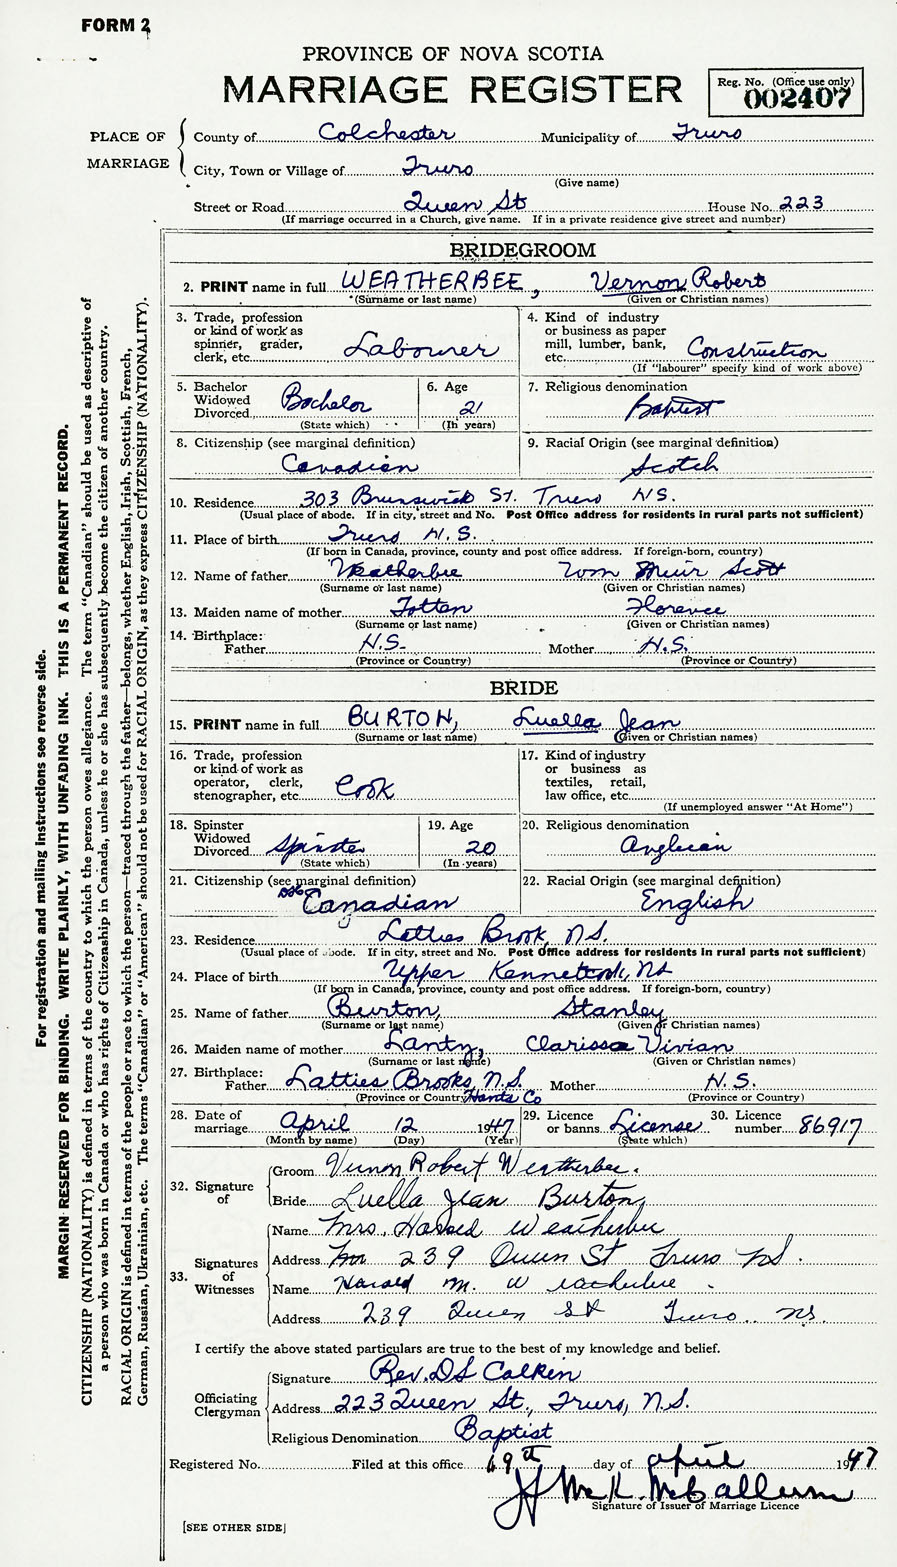 FORM 2
PROVINCE OF NOVA SCOTIA
MARRIAGE REGISTER
Reg. No. (Office use only)
002407
PLACE OF MARRIAGE
County of Colchester Municipality of Truro
City, Town or Village of Truro
(Give name)
Street or Road Queen St House No. 223
(If marriage occurred in a Church, give name. If in a private residence give street and number)
BRIDEGROOM
2. PRINT name in full WEATHERBEE, Vernon Robert
(Surname or last name) (Given or Christian names)
3. Trade, profession or kind of work as spinner, grader, clerk, etc. Labourer
4. Kind of industry or business as paper mill, lumber, bank, etc. Construction
(If "labourer" specify kind of work above)
5. Bachelor Widowed Divorced Bachelor
(State which)
6. Age 21
(In years)
7. Religious denomination
Baptist
8. Citizenship (see marginal definition)
Canadian
9. Racial Origin (see marginal definition)
Scotch
10. Residence 303 Brunswick St. Truro N.S.
(Usual place of abode. If in city, street and No. Post Office address for residents in rural parts not sufficient)
11. Place of birth Truro N.S.
(If born in Canada, province, county and post office address. If foreign-born, country)
12. Name of father Weatherbee Wm Muir Scott
(Surname or last name) (Given or Christian names)
13. Maiden name of mother Totten Florence
(Surname or last name) (Given or Christian names)
14. Birthplace:
Father N.S. Mother N.S.
(Province or Country) (Province or Country)
BRIDE
15. PRINT name in full BURTON, Luella Jean
(Surname or last name) (Given or Christian names)
16. Trade, profession or kind of work as operator, clerk, stenographer, etc. Cook
17. Kind of industry or business as textiles, retail, law office, etc.
(If unemployed answer "At Home")
18. Spinster Widowed Divorced Spinster
(State which)
19. Age 20
(In years)
20. Religious denomination
Anglican
21. Citizenship (see marginal definition)
Canadian
22. Racial Origin (see marginal definition)
English
23. Residence Latties Brook, N.S.
(Usual place of abode. If in city, street and No. Post Office address for residents in rural parts not sufficient)
24. Place of birth Upper Kennetcook, NS
(If born in Canada, province, county and post office address. If foreign-born, country)
25. Name of father Burton, Stanley
(Surname or last name) (Given or Christian names)
26. Maiden name of mother Lantz, Clarissa Vivian
(Surname or last name) (Given or Christian names)
27. Birthplace:
Father Latties Brooks, N.S. Mother N.S.
(Province or Country) Hants Co (Province or Country)
28. Date of marriage April 12 1947
(Month by name) (Day) (Year)
29. Licence or banns License
(State which)
30. Licence number 86917
32. Signature of
Groom Vernon Robert Weatherbee.
Bride Luella Jean Burton
33. Signatures of Witnesses
Name Mrs. Harold Weatherbee
Address 239 Queen St Truro NS.
Name Harold M. Weatherbee
Address 239 Queen St Truro NS.
I certify the above stated particulars are true to the best of my knowledge and belief.
Officiating Clergyman
Signature Rev. D S Calkin
Address 223 Queen St., Truro, N.S.
Religious Denomination Baptist
Registered No. Filed at this office 19th day of april 1947
J McK. McCallum
Signature of Issuer of Marriage Licence
[SEE OTHER SIDE]
For registration and mailing instructions see reverse side.
MARGIN RESERVED FOR BINDING. WRITE PLAINLY, WITH UNFADING INK. THIS IS A PERMANENT RECORD.
CITIZENSHIP (NATIONALITY) is defined in terms of the country to which the person owes allegiance. The term "Canadian" should be used as descriptive of
a person who was born in Canada or who has rights of Citizenship in Canada, unless he or she has subsequently become the citizen of another country.
RACIAL ORIGIN is defined in terms of the people or race to which the person—traced through the father—belongs, whether English, Irish, Scottish, French,
German, Russian, Ukrainian, etc. The terms "Canadian" or "American" should not be used for RACIAL ORIGIN, as they express CITIZENSHIP (NATIONALITY).